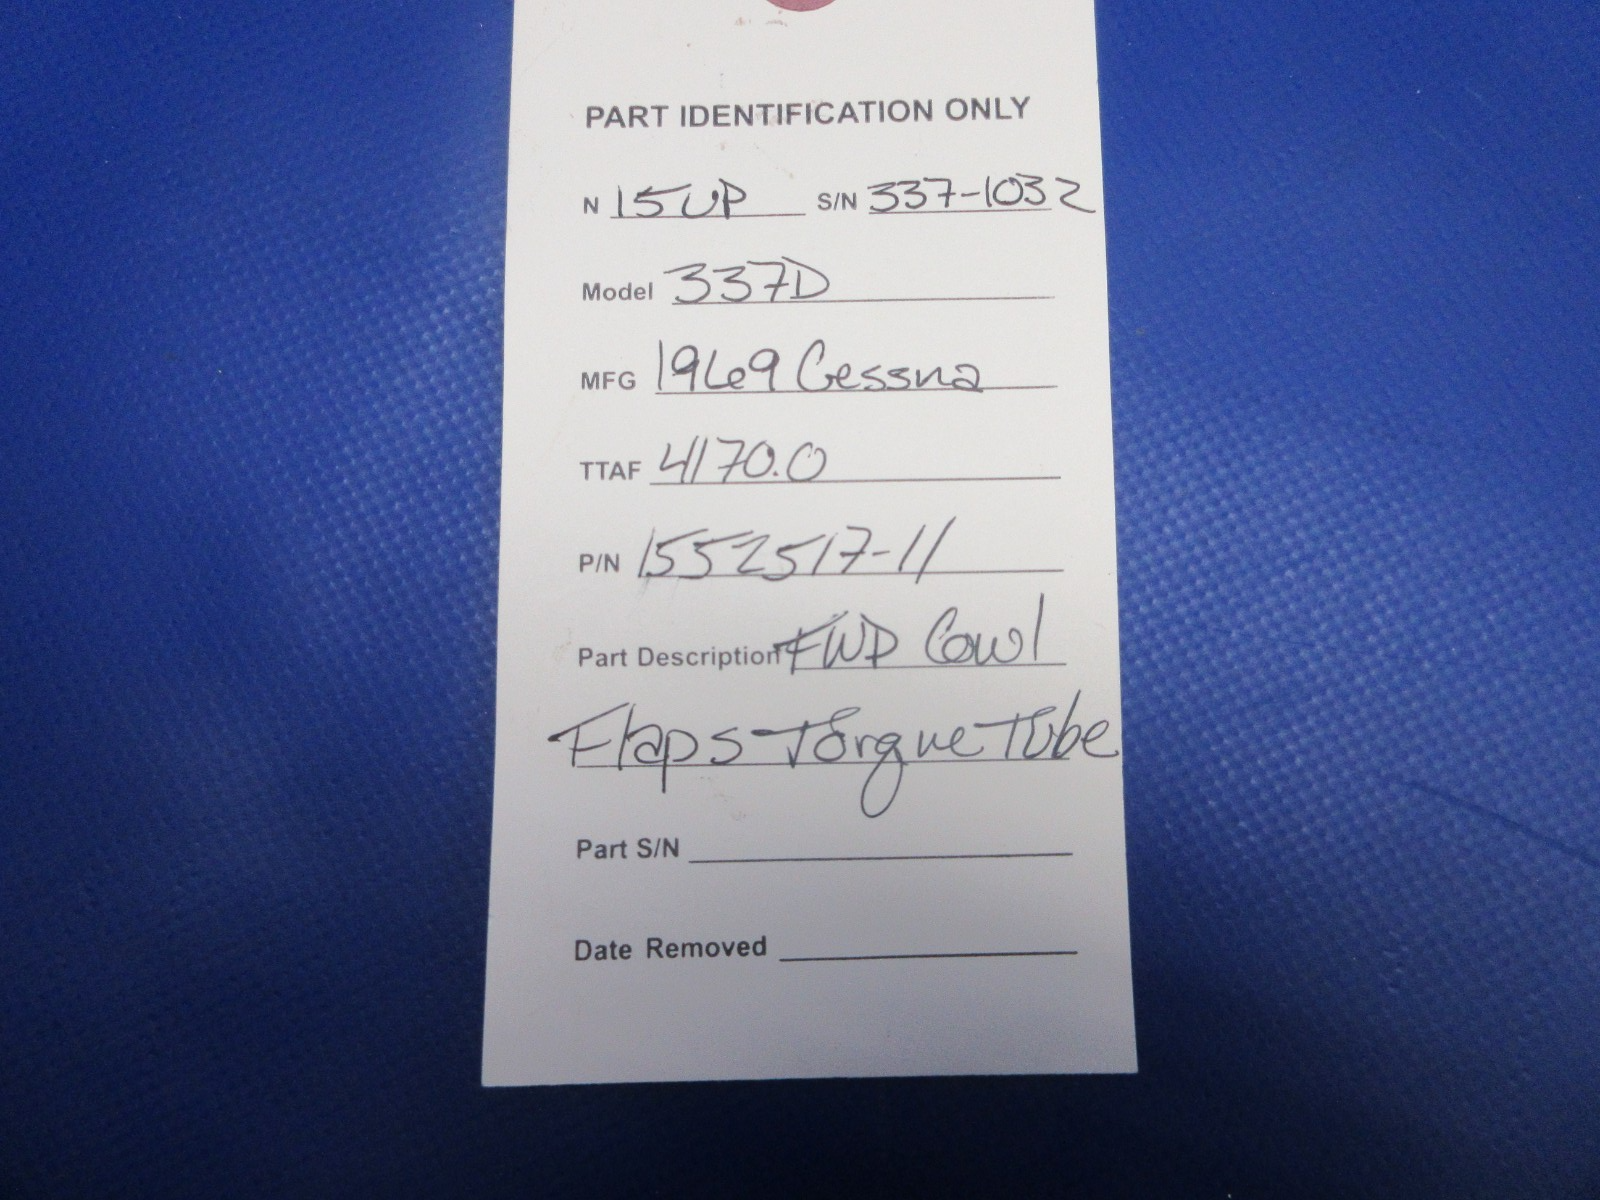 PART IDENTIFICATION ONLY
N 15UP S/N 337-1032
Model 337D
MFG 1969 Cessna
TTAF 4170.0
P/N 1552517-11
Part Description FWD Cowl
Flaps Torque Tube
Part S/N
Date Removed